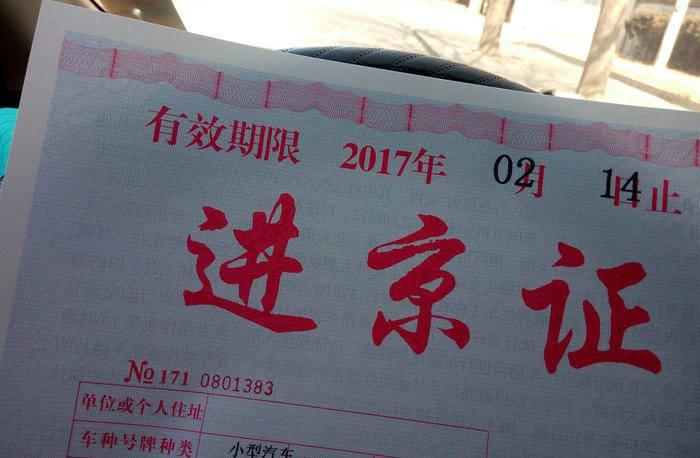 有效期限 2017年 02月 14日止
进京证
№ 171 0801383
单位或个人住址
车种号牌种类 小型汽车